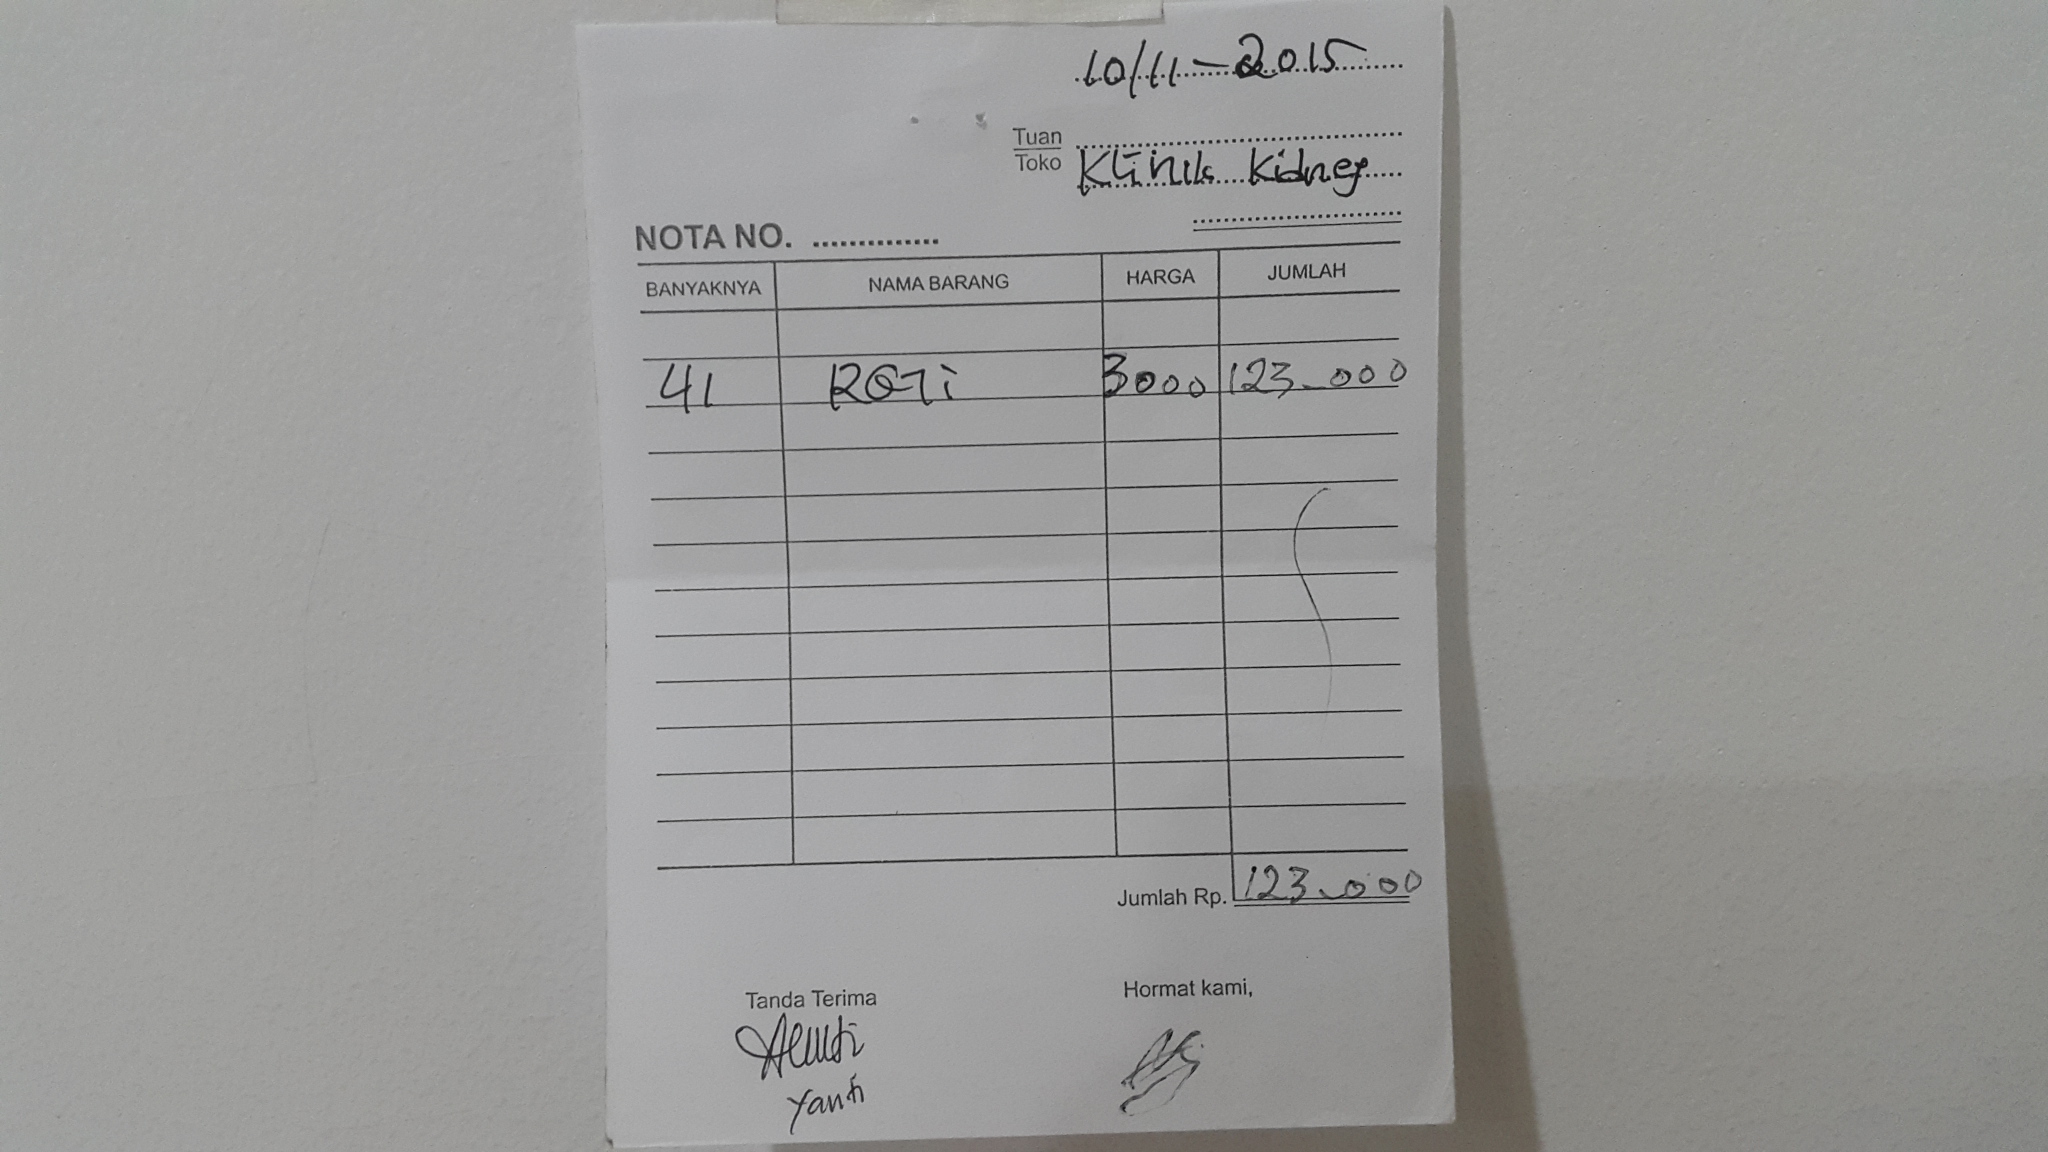 10/11-2015
Tuan
Toko Klinik Kidney
NOTA NO. ..............
BANYAKNYA NAMA BARANG HARGA JUMLAH
41 ROTi 3000 123.000
Jumlah Rp. 123.000
Tanda Terima Hormat kami,
Yanti